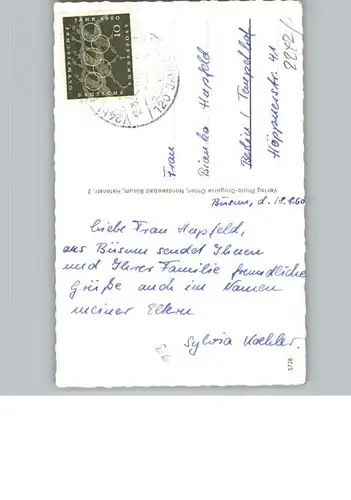 OLYMPISCHES
JAHR 1960
10
DEUTSCHE
BUNDESPOST
(24b)
120 JAHRE
Frau
Bianka Hupfeld
Berlin / Tempelhof
Höppnerstr. 41
Verlag Photo-Drogerie Ohlen, Nordseebad Büsum, Hafenstr. 2
Büsum, d. 18.8.60
Liebe Frau Hupfeld,
aus Büsum sendet Ihnen
und Ihrer Familie freundliche
Grüße auch im Namen
meiner Eltern
Sylvia Koehler.
5728